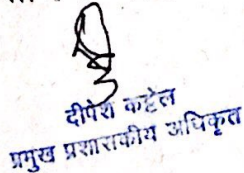 दीपेश कट्टेल
प्रमुख प्रशासकीय अधिकृत